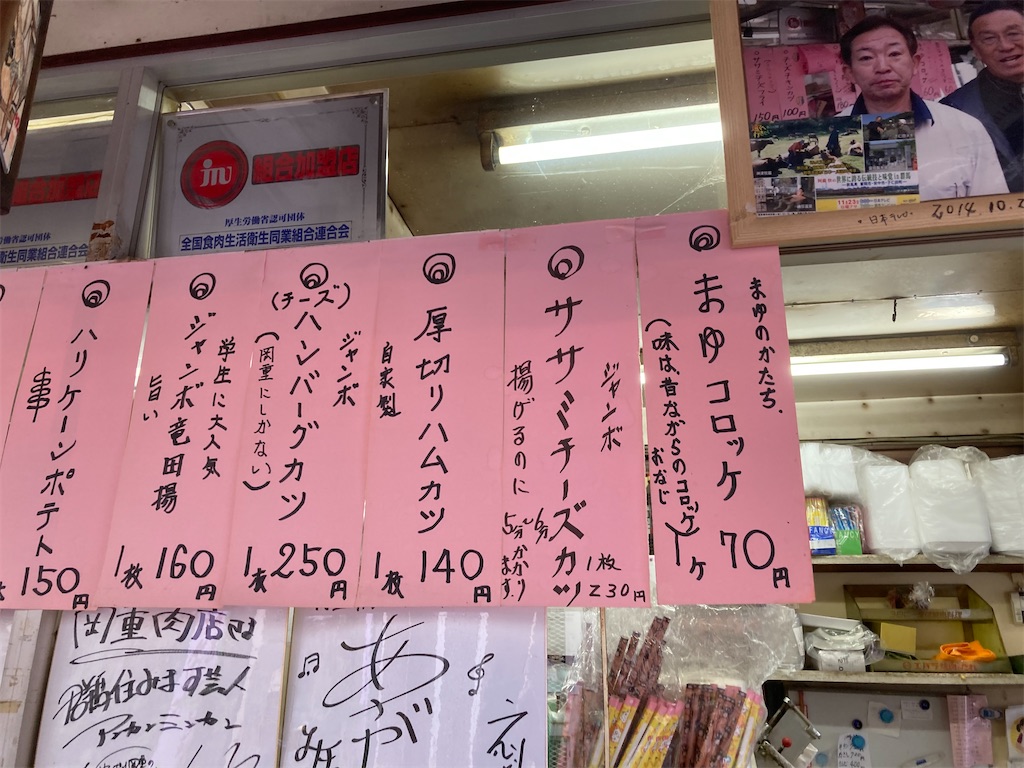 まゆのかたち.
まゆコロッケ
(味は昔ながらのコロッケと
おなじ
1ヶ 70円
ジャンボ
ササミチーズカツ
揚げるのに
5分~6分
かかります
1枚
230円
厚切りハムカツ
自家製
1枚 140円
ジャンボ
(チーズ)
ハンバーグカツ
(岡重にしかない)
1枚 250円
学生に大人気
ジャンボ竜田揚
旨い
1枚 160円
ハリケーンポテト
串
150円
組合加盟店
厚生労働省認可団体
全国食肉生活衛生同業組合連合会
厚生労働省認可団体
衛生同業組合連合会
150円
100円
2014.10.2
岡重肉店さん
住みます芸人
アンカンミンカン